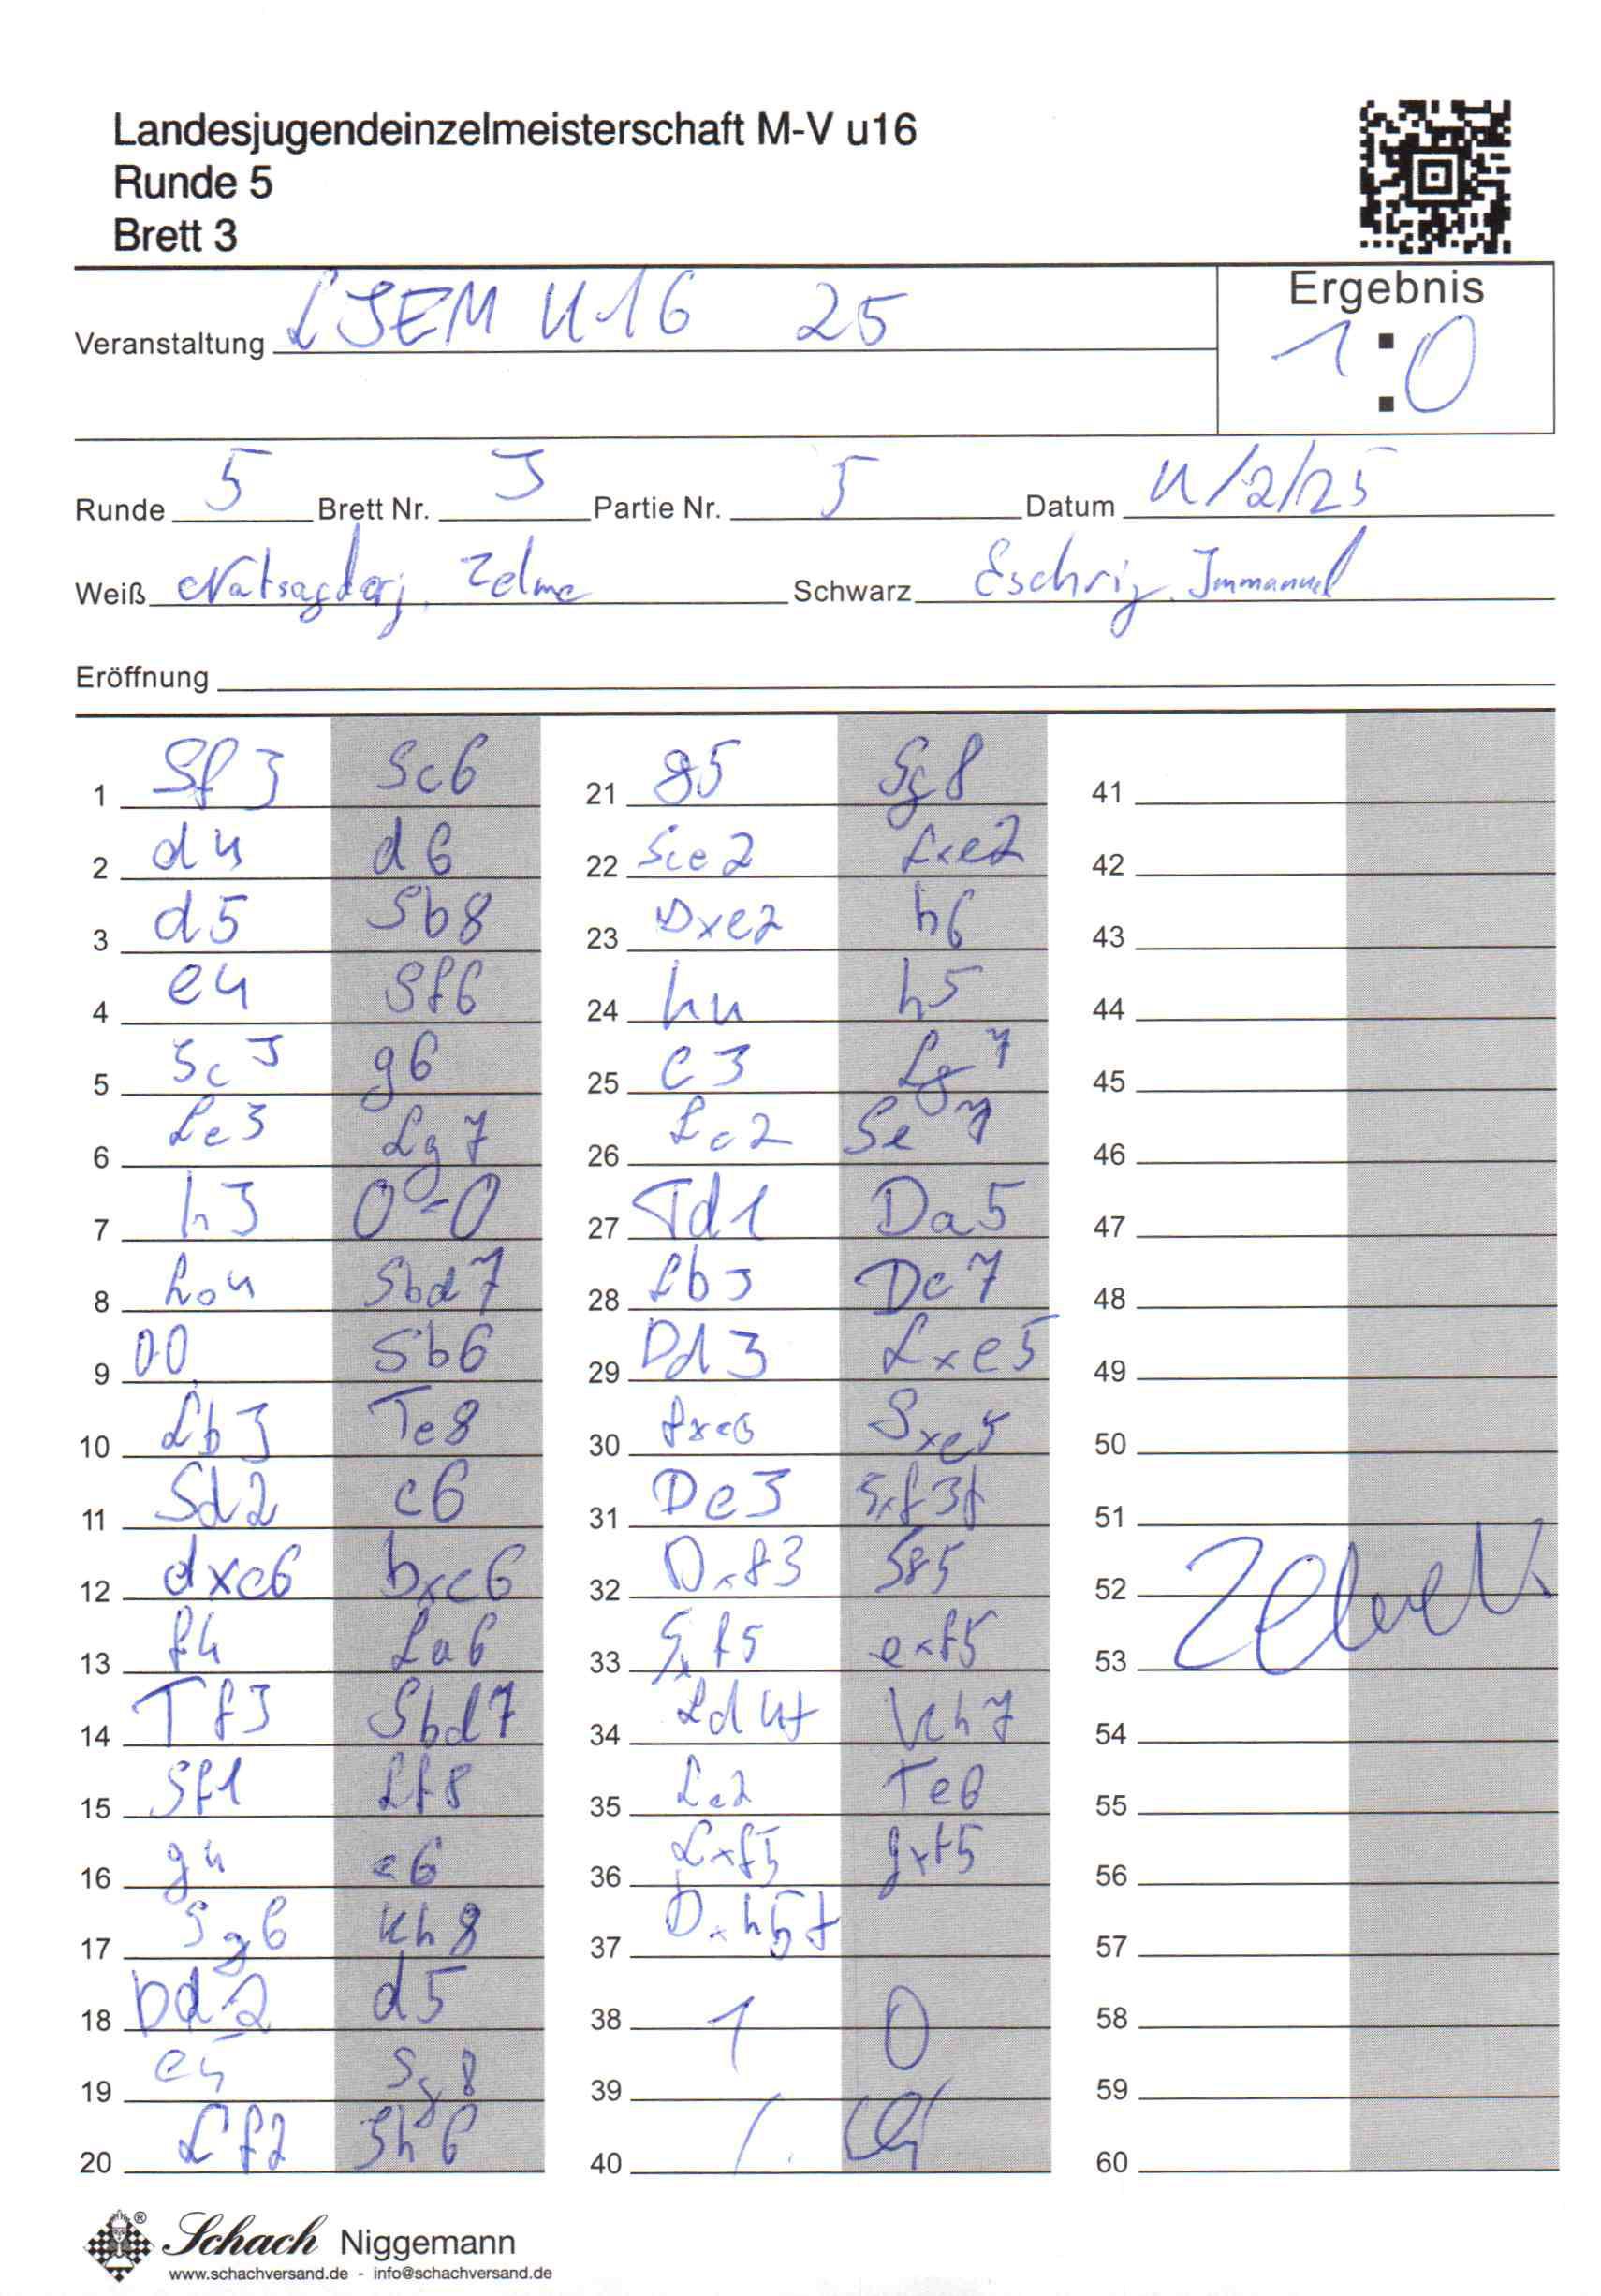 Landesjugendeinzelmeisterschaft M-V u16
Runde 5
Brett 3
Ergebnis
1:0
Veranstaltung LJEM U16 25
Runde 5 Brett Nr. 3 Partie Nr. 5 Datum 11/2/25
Weiß Natsagdorj, Zelme Schwarz Eschrig, Immanuel
Eröffnung
1 Sf3 Sc6
2 d4 d6
3 d5 Sb8
4 e4 Sf6
5 Sc3 g6
6 Le3 Lg7
7 h3 0-0
8 Lc4 Sbd7
9 0-0 Sb6
10 Lb3 Te8
11 Sd2 c6
12 dxc6 bxc6
13 f4 La6
14 Tf3 Sbd7
15 Sf1 Lf8
16 g4 e6
17 Sg6 Kh8
18 Dd2 d5
19 e5 Sg8
20 Lf2 Sh6
21 g5 Sg8
22 Sce2 Lxe2
23 Dxe2 h6
24 h4 h5
25 c3 Lg7
26 Lc2 Se7
27 Td1 Da5
28 Lb3 Dc7
29 Dd3 Lxe5
30 fxe5 Sxe5
31 De3 Sxf3†
32 Dxf3 Sf5
33 Sxf5 exf5
34 Ld4† Kh7
35 Lc2 Te6
36 Lxf5 gxf5
37 Dxh5†
38 1 0
39
40
41
42
43
44
45
46
47
48
49
50
51
52
53
54
55
56
57
58
59
60
Schach Niggemann
www.schachversand.de - info@schachversand.de